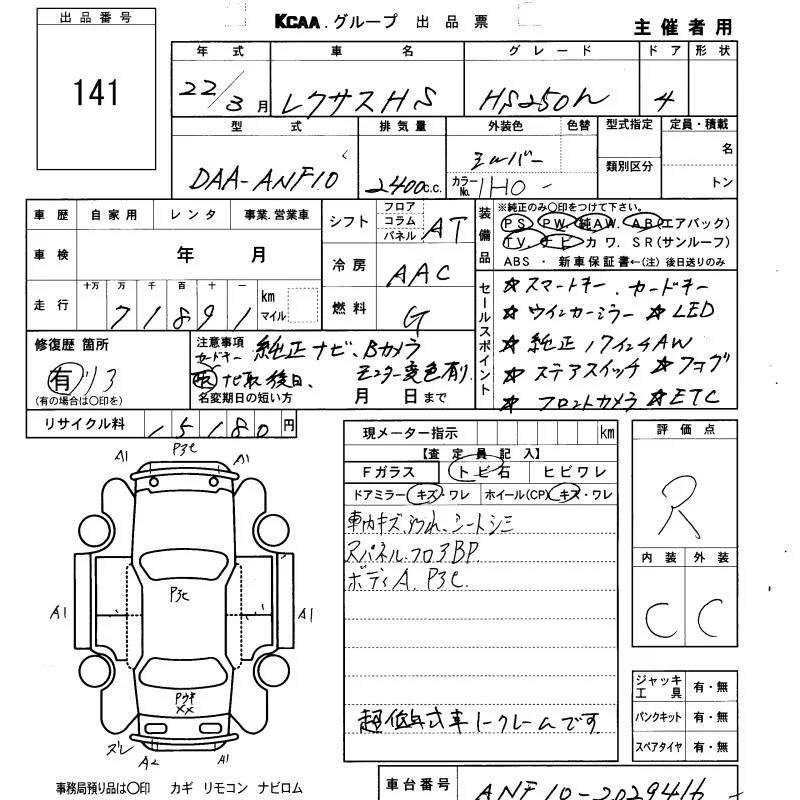 出品番号
141
KCAA.グループ 出品票
主催者用
年式 車名 グレード ドア 形状
22/3月 レクサスHS HS250h 4
型式 排気量 外装色 色替 型式指定 定員・積載
DAA-ANF10 2400c.c. シルバー 類別区分 名
カラーNo. 1H0 トン
車歴 自家用 レンタ 事業.営業車
シフト フロア コラム パネル AT
装備品
※純正のみ○印をつけて下さい。
PS PW. 純AW. AB(エアバック)
TV. ナビ カワ. SR(サンルーフ)
ABS ・ 新車保証書←(注)後日送りのみ
車検 年 月
冷房 AAC
走行 十万 万 千 百 十 一 km マイル
71891
燃料 G
セールスポイント
☆スマートキー、カードキー
☆ウインカーミラー ☆LED
☆純正17インチAW
☆ステアスイッチ ☆フォグ
☆フロントカメラ ☆ETC
修復歴 箇所
有 リ3
(有の場合は○印を)
注意事項
カードキー 純正ナビ、Bカメラ
取後日、モニター変色有り
名変期日の短い方 月 日まで
リサイクル料 15180円
現メーター指示 km
【査定員記入】
Fガラス トビ石 ヒビワレ
ドアミラー キズ・ワレ ホイール(CP) キズ・ワレ
車内キズ、汚れ、シートシミ
Rパネル.フロアBP.
ボディA. P3e.
超低年式車ノークレームです
評価点
R
内装 外装
C C
ジャッキ工具 有・無
パンクキット 有・無
スペアタイヤ 有・無
A1 P3e A1
A1 P3e A1
Pウキ
XX
ズレ A2 A1
事務局預り品は○印 カギ リモコン ナビロム
車台番号 ANF10-2029416